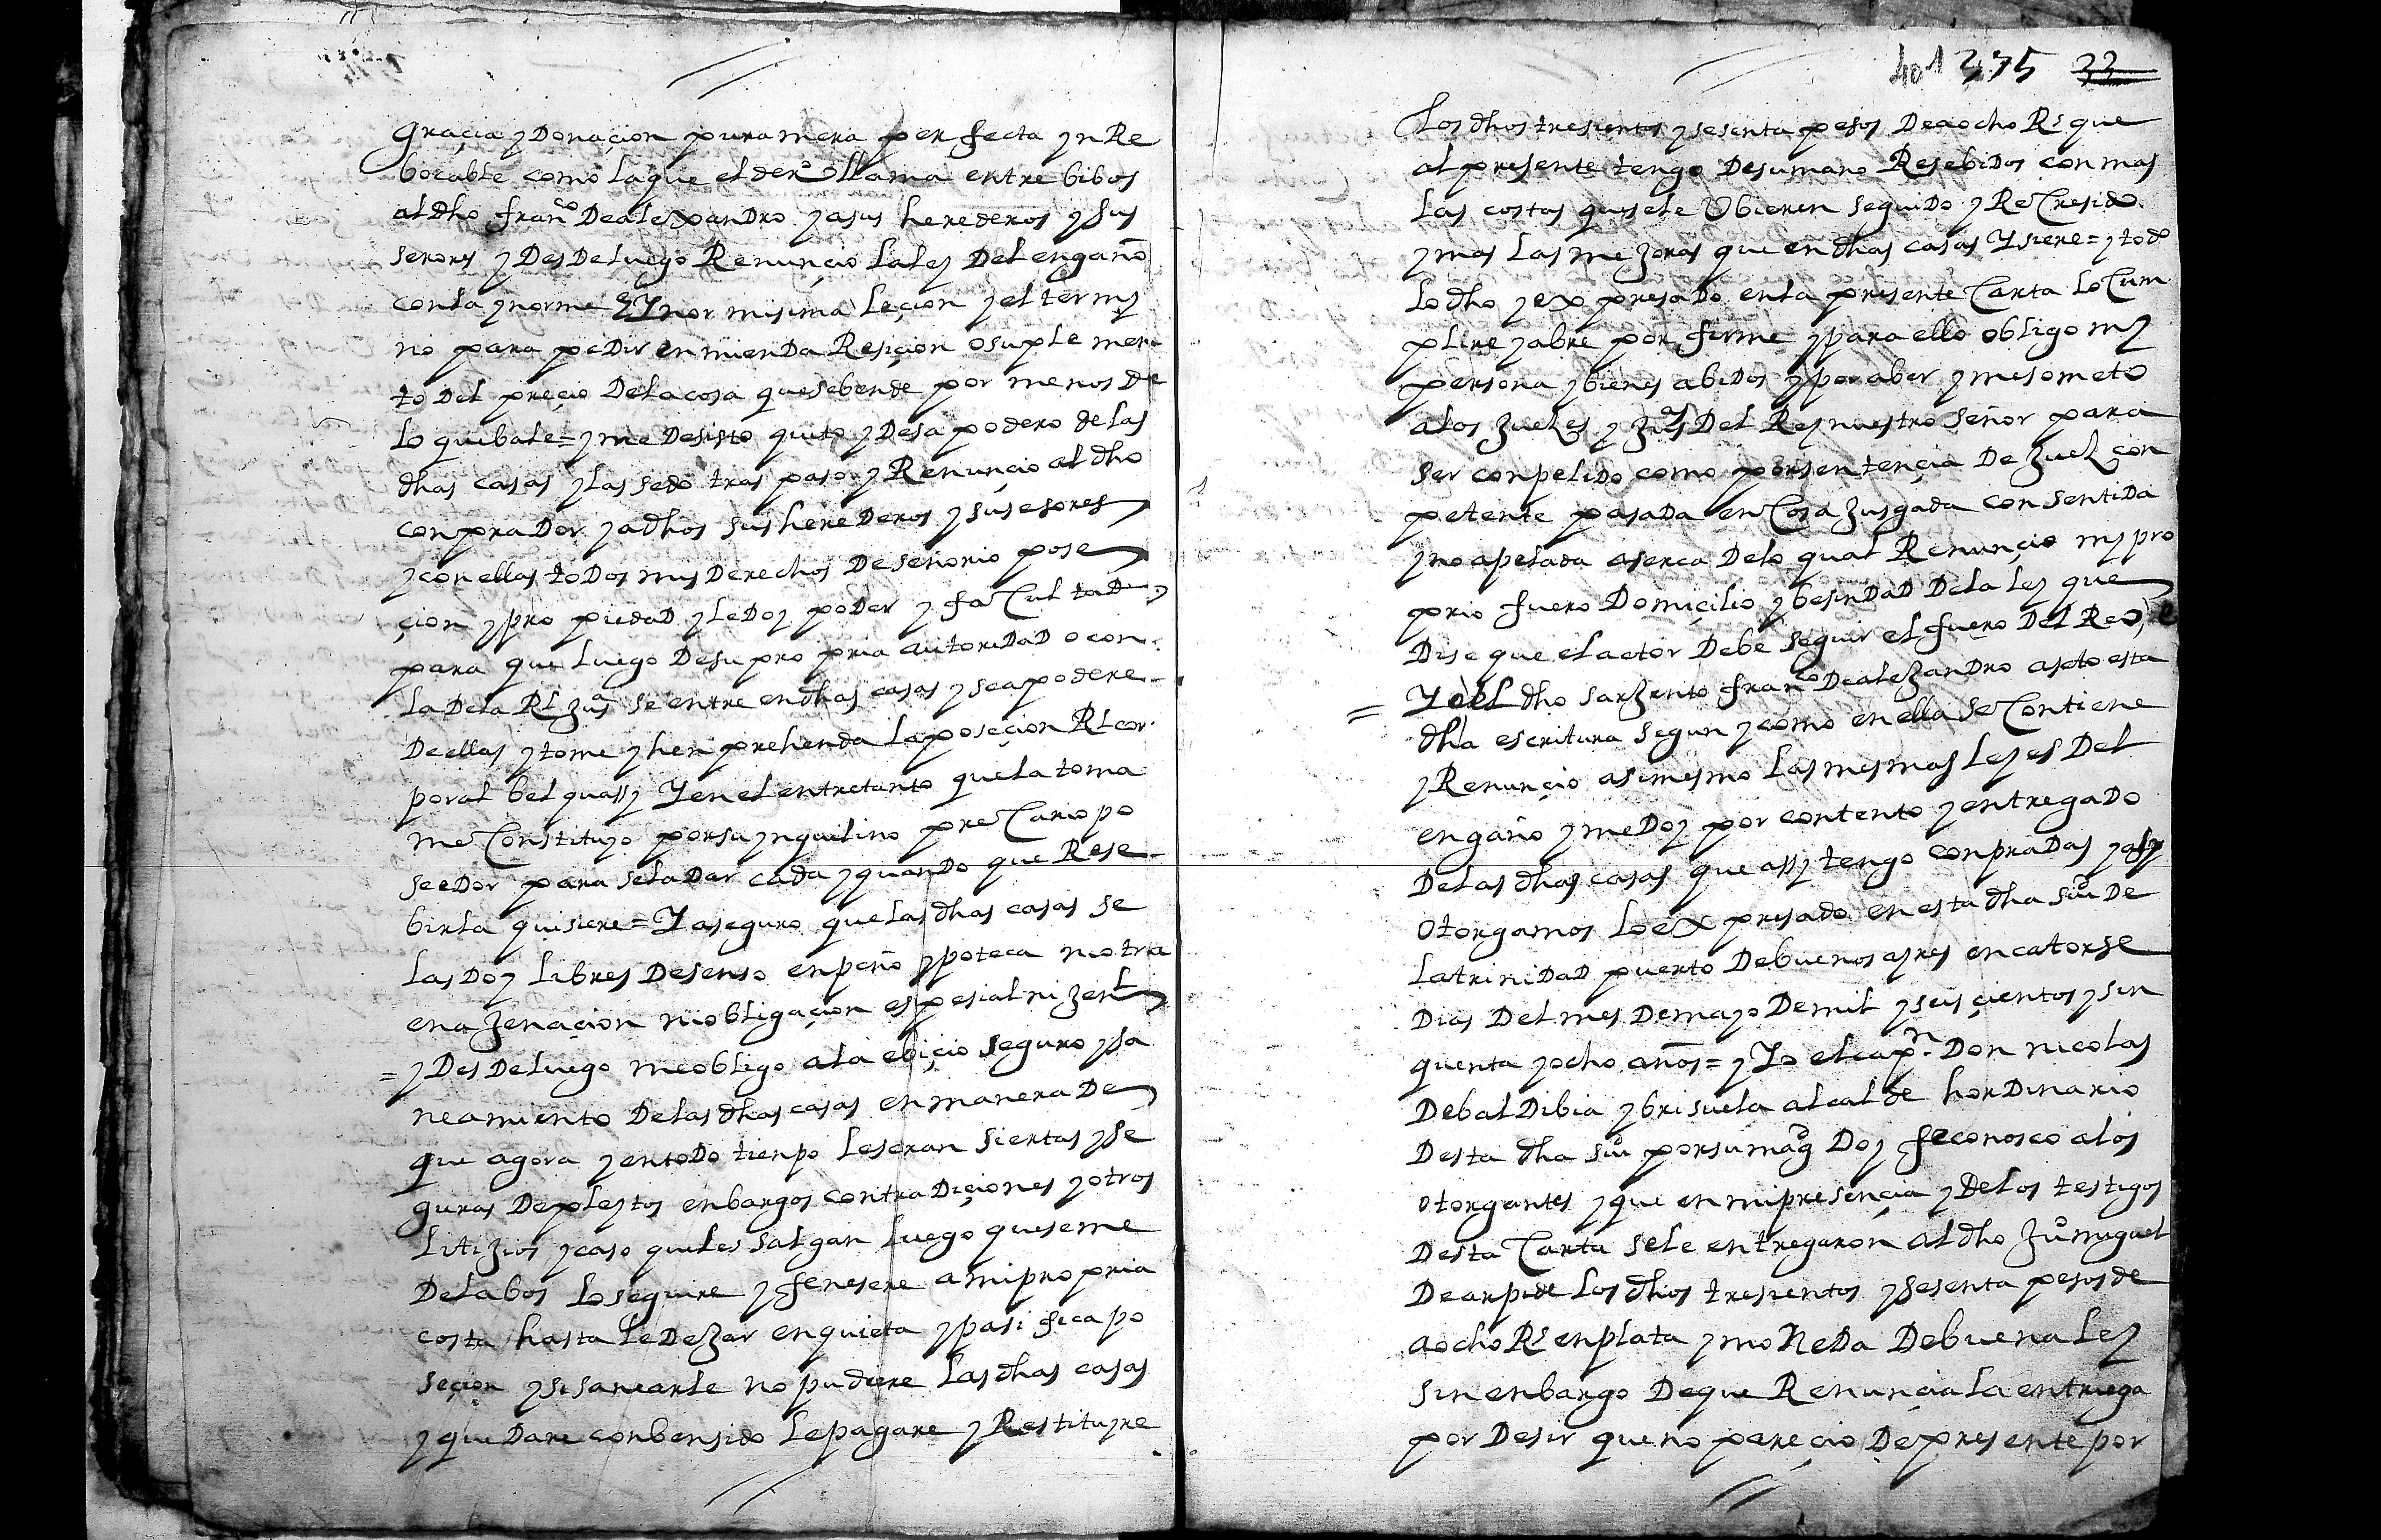 graçia y Donaçion pura mera perfecta yn Re
bocable como la que el derº llama entre bibos
al dho franco De alexandro y a sus herederos y sus
sesores y Des De luego Renunçio la ley Del engaño
con la ynorme e Ynormisima leçion y el termi
no para pedir enmienda Resiçion o suplemen
to Del preçio De la cosa que se bende por menos de
lo que bale = y me Desisto quito y Desapodero de las
dhas casas y las sedo traspaso y Renunçio al dho
conprador y a dhos sus herederos y susesores
y con ellas todos mis Derechos De señorio pose
çion y propiedad y le Doy poder y facultad
para que luego De su propria autoridad o con
la De la Rl zusª se entre en dhas casas y se apodere
De ellas y tome y henprehenda la poseçion Rl cor
poral bel quassy Y en el entretanto que la toma
me Constituyo por su ynquilino preCario po
seedor para se la Dar cada y quando que Rese
birla quisiere = Y aseguro que las dhas casas se
las Doy libres De senso enpeño ypoteca ni otra
enazenaçion ni obligaçion espesial ni zenl
= y Des De luego me obligo a la ebiçio seguro y sa
neamiento De las dhas casas en manera De
que agora y en todo tienpo le seran siertas y se
guras De pleytos enbargos contradiçiones y otros
litizios y caso que les salgan luego que se me
De la bos lo seguire y fenesere a mi propria
costa hasta le Dezar en quieta y pasifica po
seçion y si sanearle no pudiere las dhas casas
y quedare conbensido le pagare y Restituyre
401 375 33
Los dhos tresientos y sesenta pesos De a ocho Rs que
al presente tengo De su mano Resebidos con mas
las costas que se le Ubieren seguido y ReCresido
y mas las mezoras que en dhas casas Ysiere = y todo
lo dho y expresado en la presente Carta lo Cum
plire y abre por firme y para ello obligo mi
persona y bienes abidos y por aber y me someto
a los zuezes y zusªs Del Rey nuestro señor para
ser conpelido como por sentençia De zuez con
petente pasada en Cosa zusgada consentida
y no apelada aserca De lo qual Renunçio mi pro
prio fuero Domiçilio y besindad De la ley que
Dise que el actor Debe seguir el fuero Del Reo, e
= Yo el dho sarzento franco De alezandro aseto esta
dha escritura segun y como en ella se Contiene
y Renunçio asimesmo las mesmas leyes Del
engaño y me Doy por contento y entregado
De las dhas casas que assy tengo conpradas y assy
otorgamos lo expresado en esta dha siud De
la trinidad puerto De buenos ayres en catorse
Dias Del mes De mayo De mil y seisçientos y sin
quenta y ocho años = y Yo el capn. Don nicolas
De baldibia y brisuela alcalde hordinario
Desta dha siud por su magd Doy fe conosco a los
otorgantes y que en mi presençia y De los testigos
Desta Carta se le entregaron al dho zuº miguel
De arpide los dhos tresientos y sesenta pesos de
a ocho Rs en plata y moneda De buena ley
sin enbargo De que Renunçia la entrega
por Desir que no pareçio De presente por